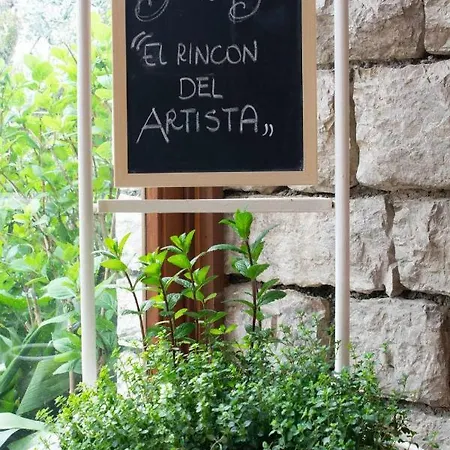 “EL RINCON
DEL
ARTISTA„